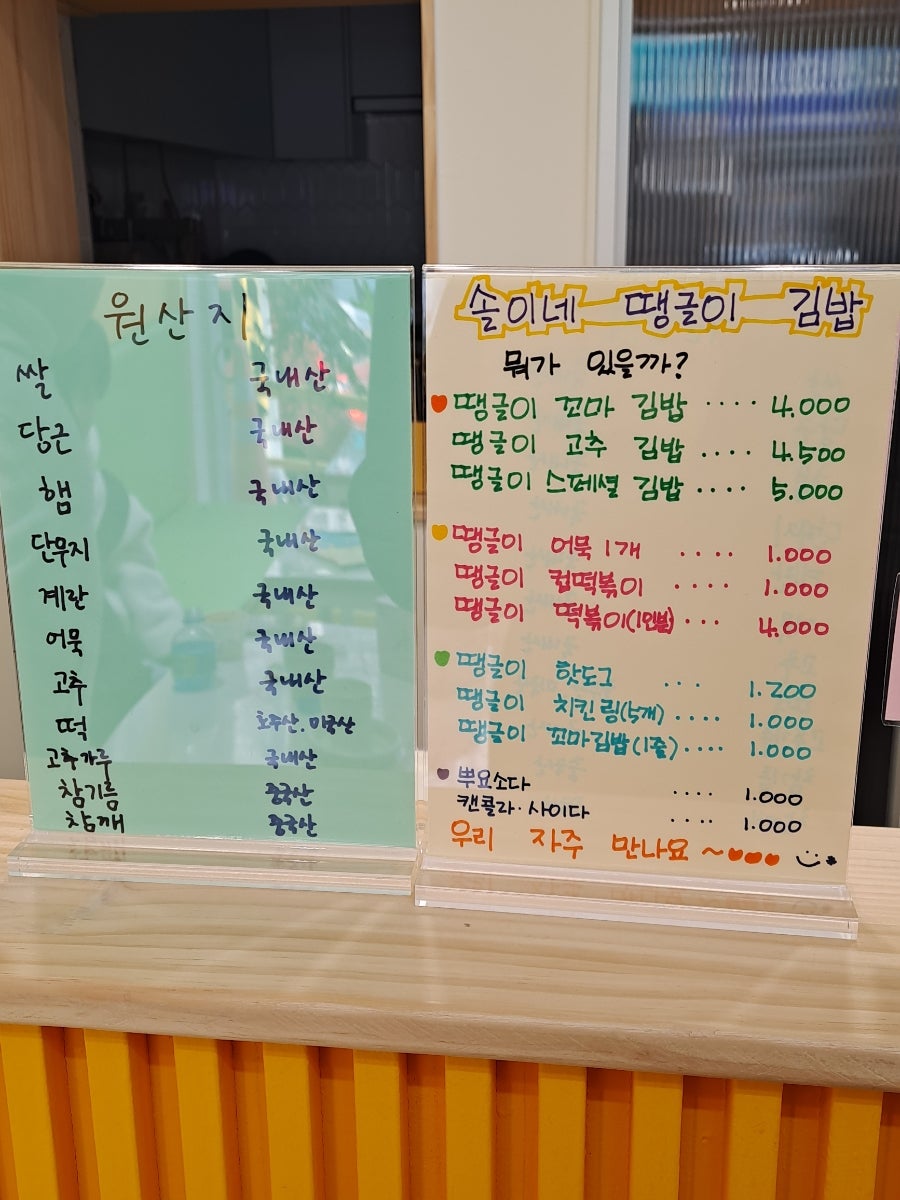 원산지
쌀 국내산
당근 국내산
햄 국내산
단무지 국내산
계란 국내산
어묵 국내산
고추 국내산
떡 호주산.미국산
고추가루 국내산
참기름 중국산
참깨 중국산
솔이네 땡글이 김밥
뭐가 있을까?
땡글이 꼬마 김밥 .... 4.000
땡글이 고추 김밥 .... 4.500
땡글이 스페셜 김밥 .... 5.000
땡글이 어묵 1개 .... 1.000
땡글이 컵떡볶이 .... 1.000
땡글이 떡볶이(1인분) ... 4.000
땡글이 핫도그 ... 1.200
땡글이 치킨링(5개) .... 1.000
땡글이 꼬마김밥(1줄) .... 1.000
뿌요소다 .... 1.000
캔콜라·사이다 .... 1.000
우리 자주 만나요 ~♥♥♥